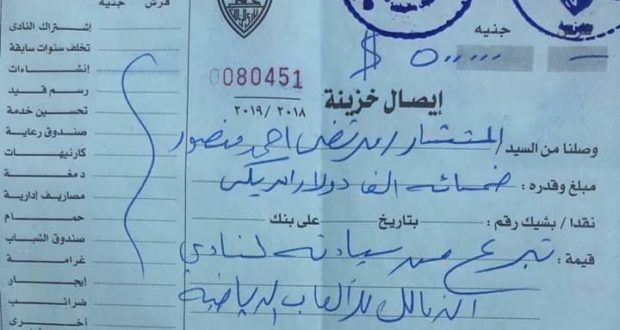 قرش جنيه
إشتراك النادى
تخلف سنوات سابقة
إنشاءات
رسم قيد
تحسين خدمة
صندوق رعاية
كارنيهات
دمغة
مصاريف إدارية
حمام
صندوق الشباب
غرامة
إيجار
ضرائب
أخرى
جنيه
$ ٥٠٠٠٠٠
0080451
إيصال خزينة
٢٠١٨ / ٢٠١٩
وصلنا من السيد / المستشار / مرتضى احمد منصور
مبلغ وقدره : خمسمائة الف دولار امريكى
نقدا / بشيك رقم : بتاريخ على بنك
قيمة : تبرع من سيادته لنادي
الزمالك للألعاب الرياضية